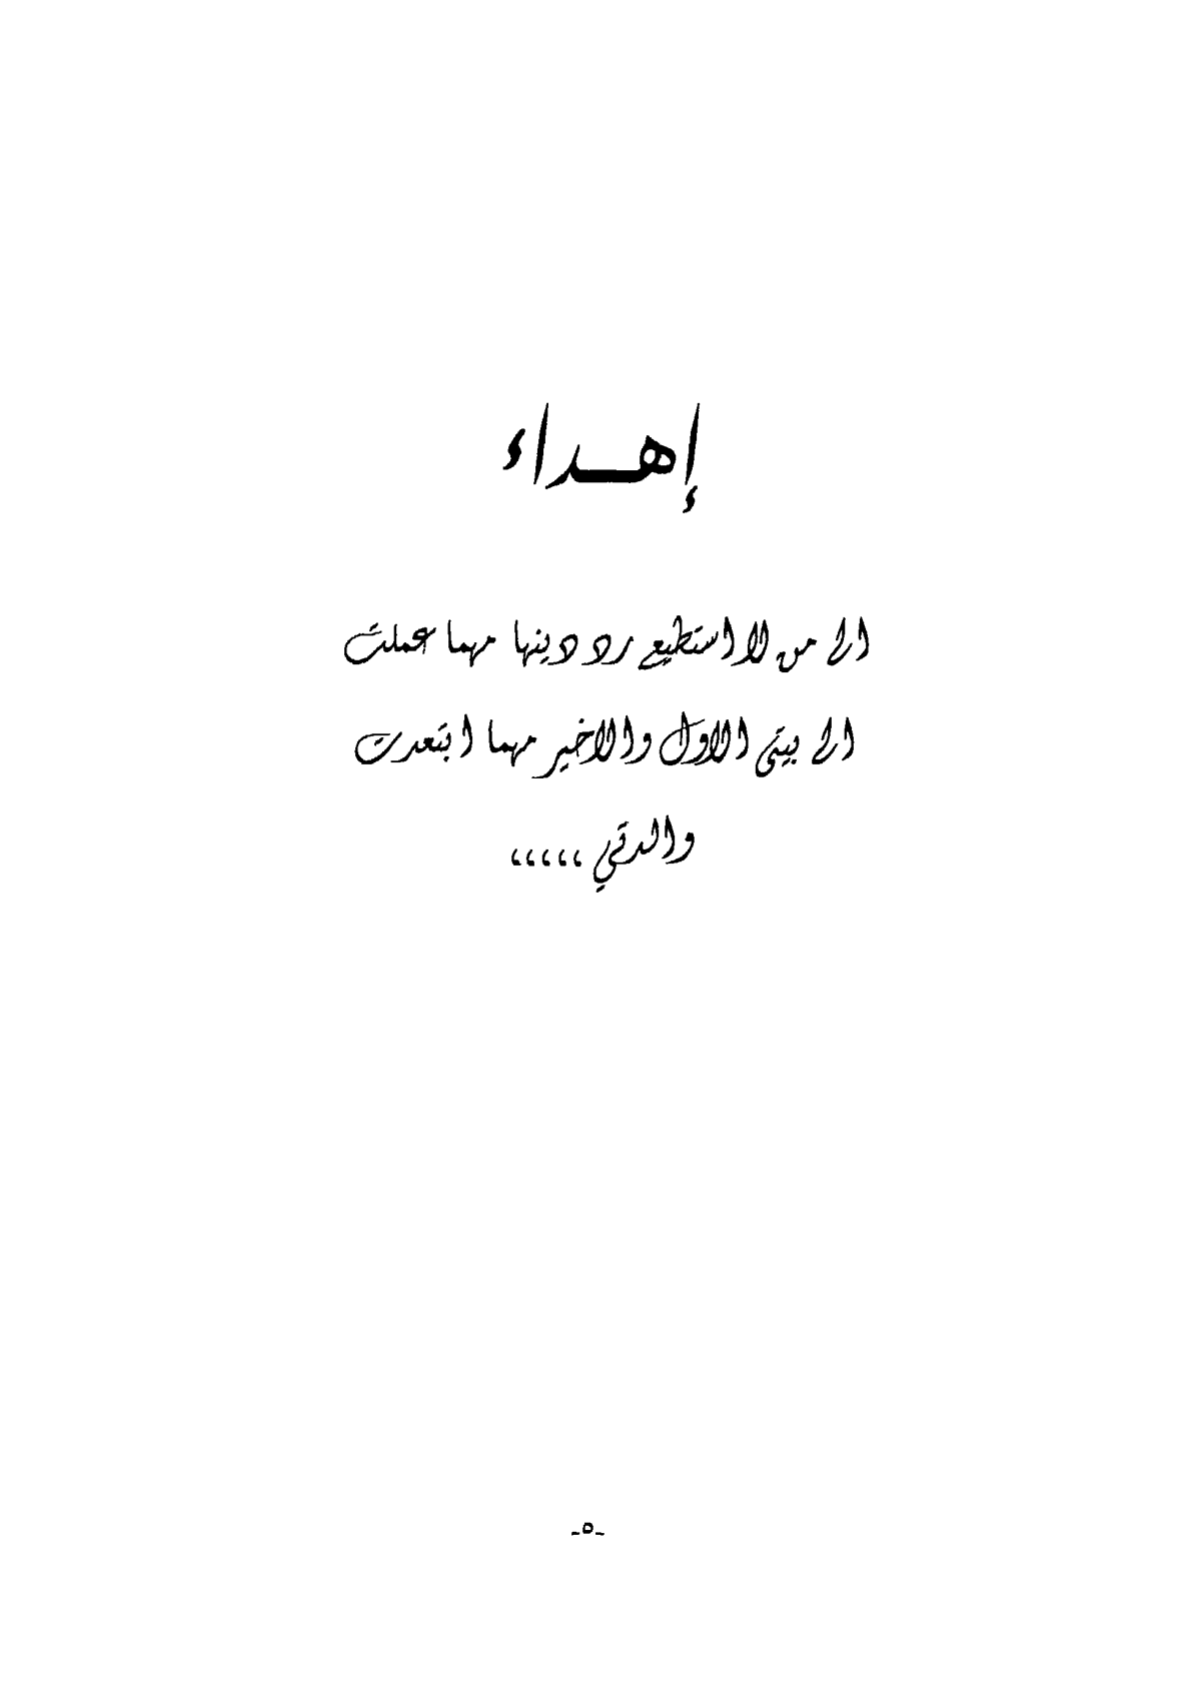 إهـداء
الى من لا استطيع رد دينها مهما عملت
الى بيتى الاول والاخير مهما ابتعدت
والدتي ،،،،،
-٥-